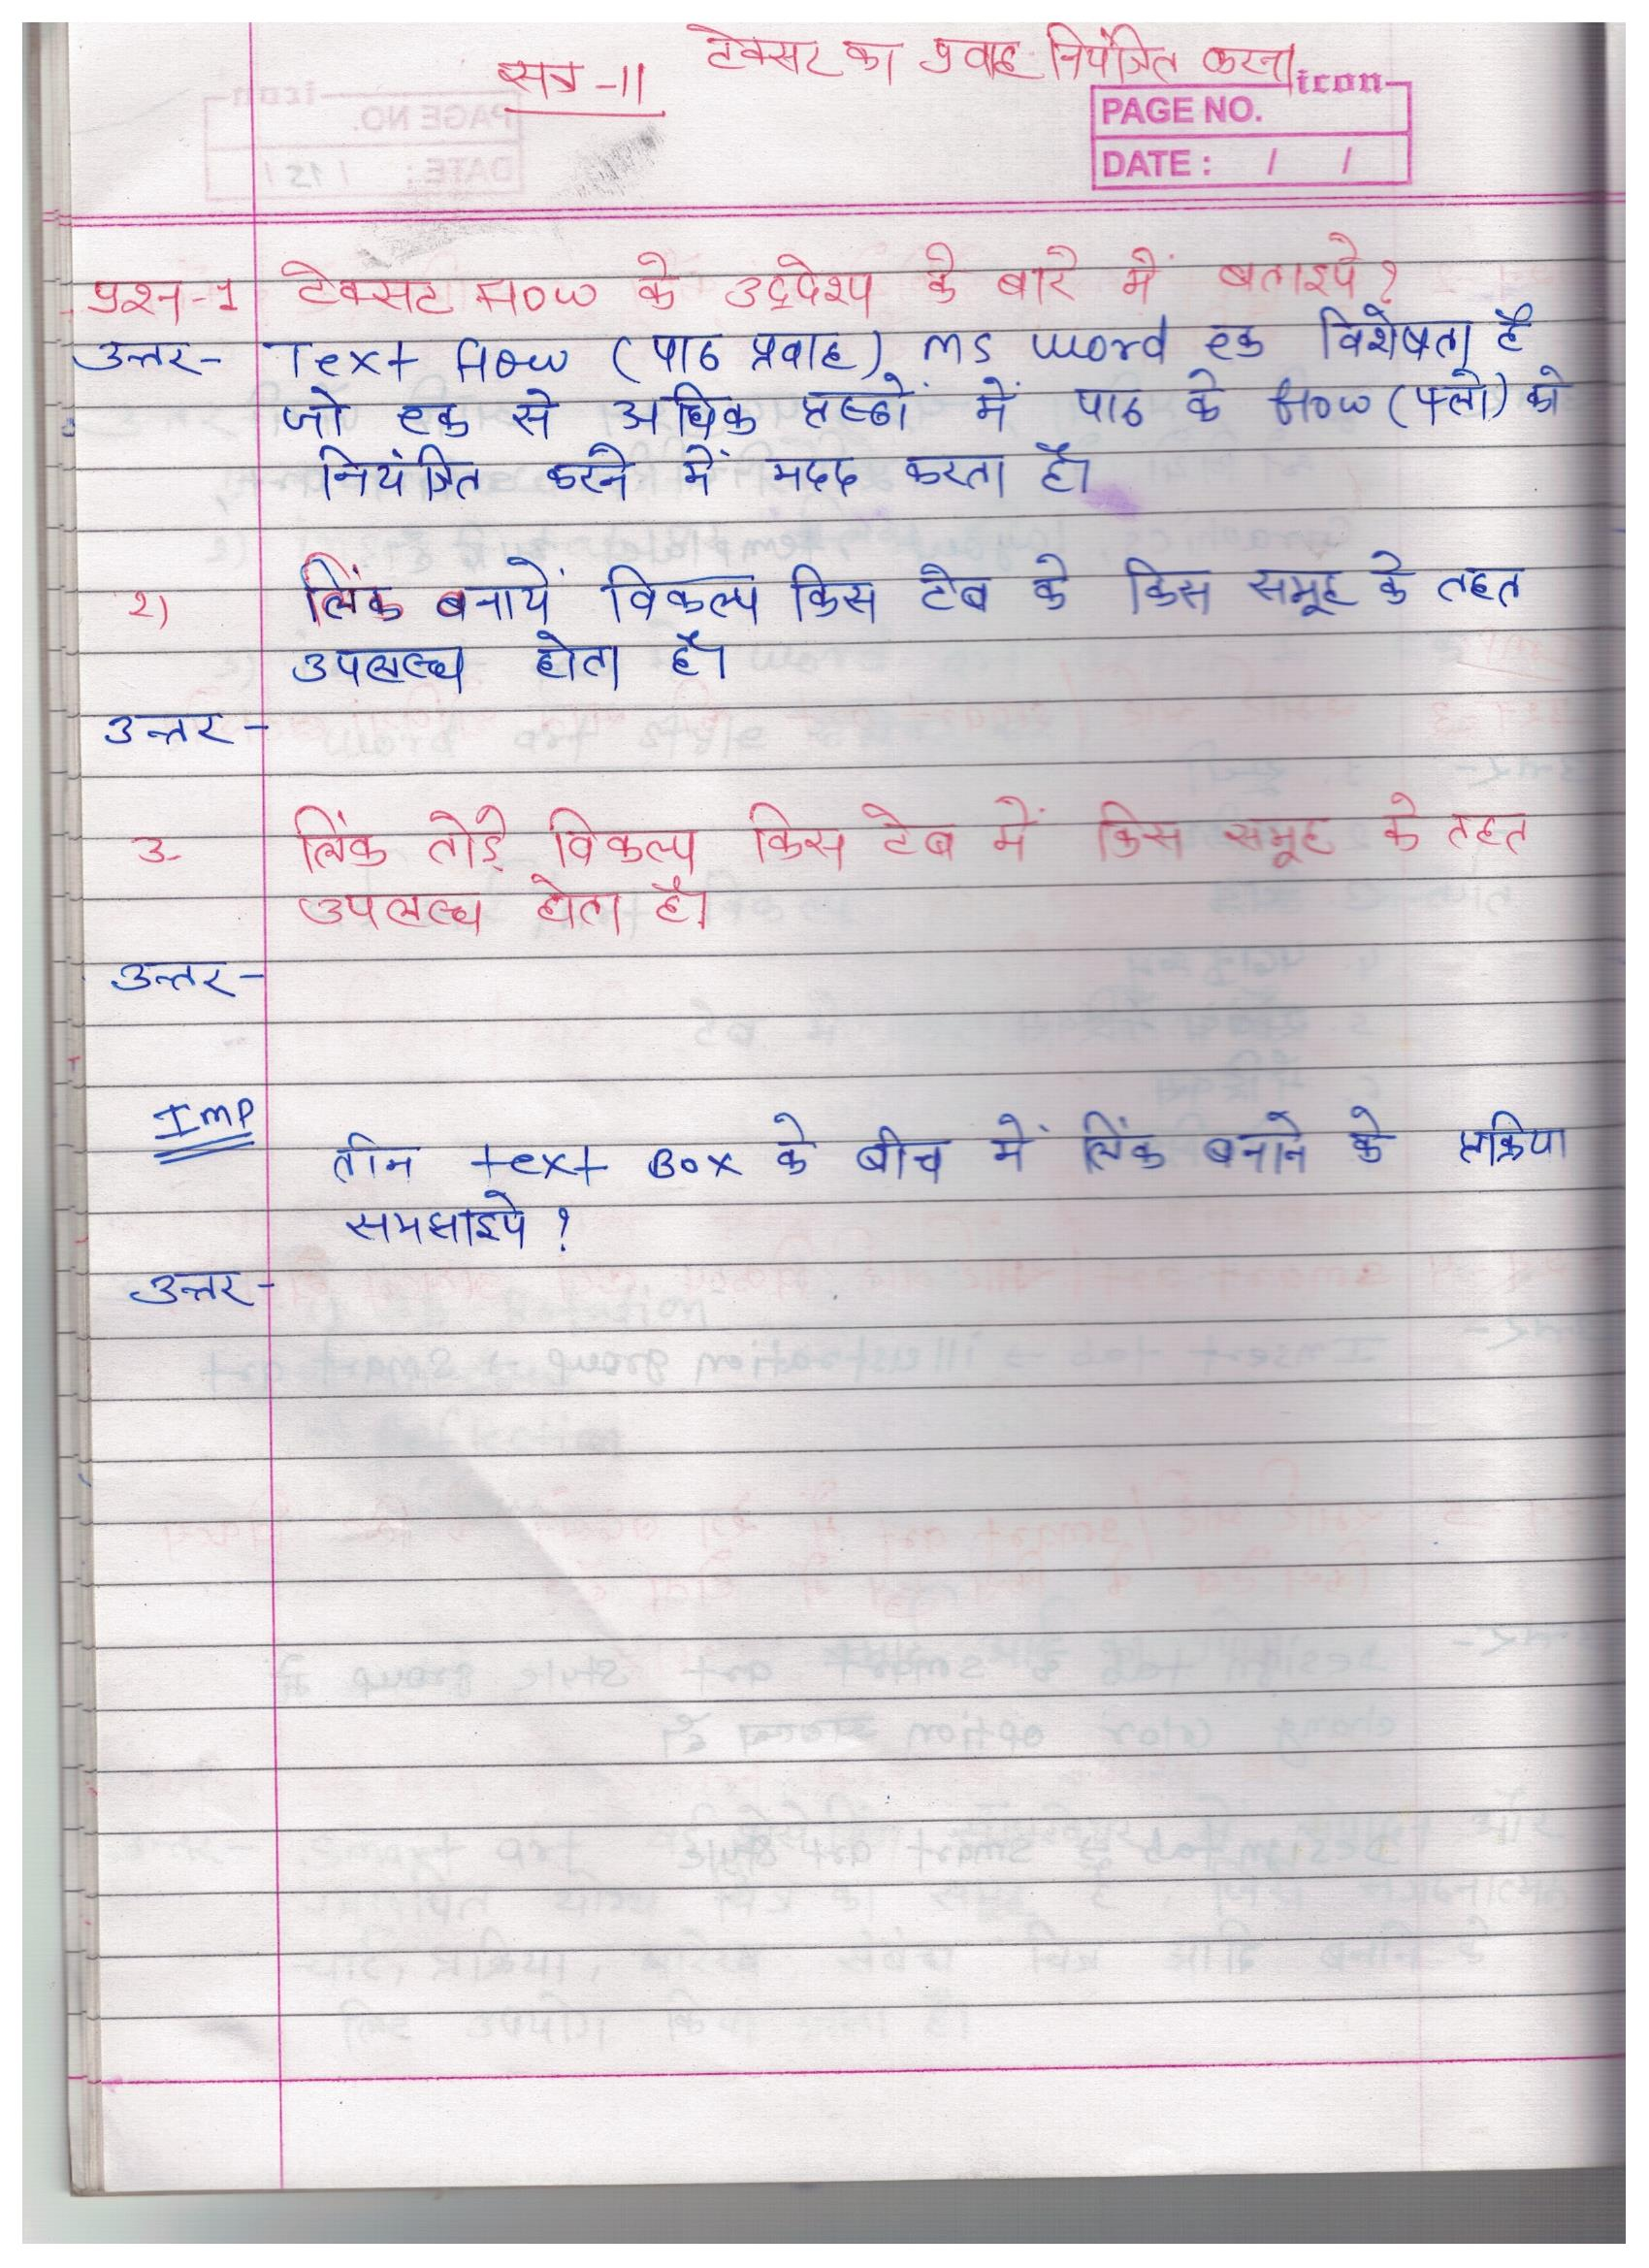 सत्र -11 टेक्सट का प्रवाह नियंत्रित करना
icon
PAGE NO.
DATE : / /
प्रश्न-1 टेक्सट flow के उद्देश्य के बारे में बताइये ?
उत्तर- Text flow (पाठ प्रवाह) ms word एक विशेषता है
जो एक से अधिक पृष्ठों में पाठ के flow (फ्लो) को
नियंत्रित करने में मदद करता है।
2) लिंक बनायें विकल्प किस टैब के किस समूह के तहत
उपलब्ध होता है।
उत्तर -
3- लिंक तोड़े विकल्प किस टेब में किस समूह के तहत
उपलब्ध होता है।
उत्तर-
Imp
तीन text Box के बीच में लिंक बनाने के प्रक्रिया
समझाइये ?
उत्तर-